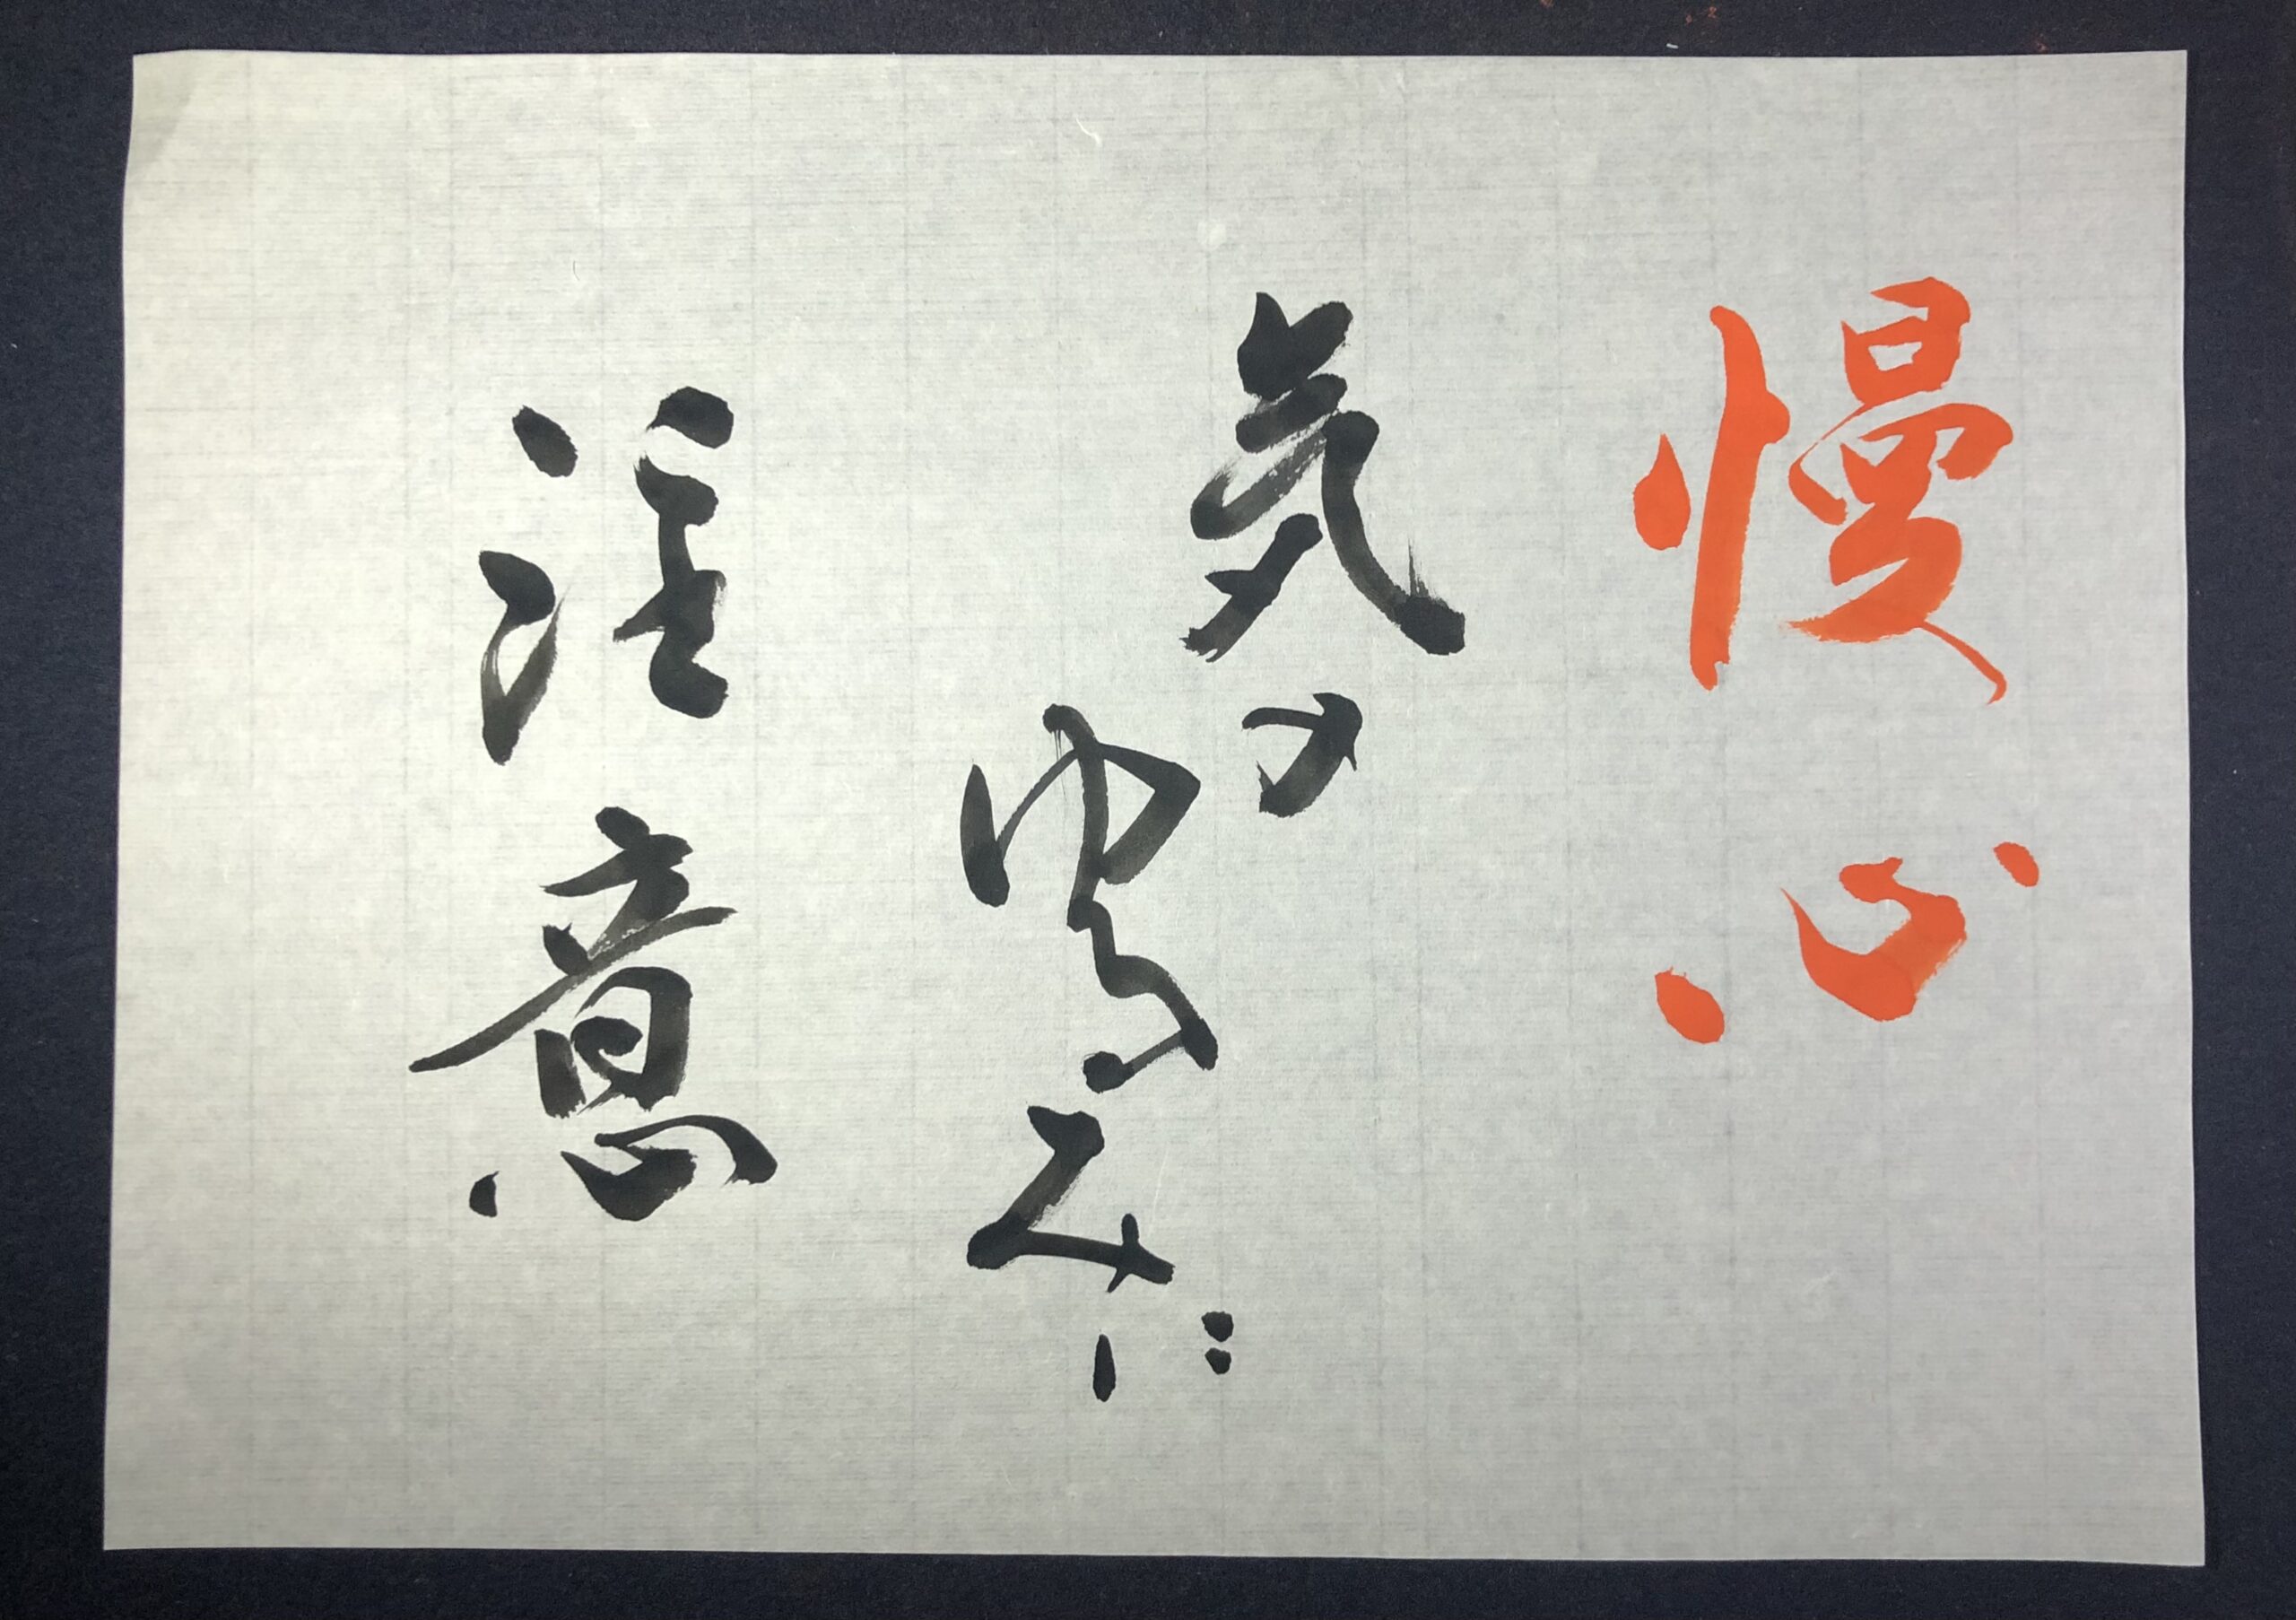 慢心
気の
ゆるみに
注意